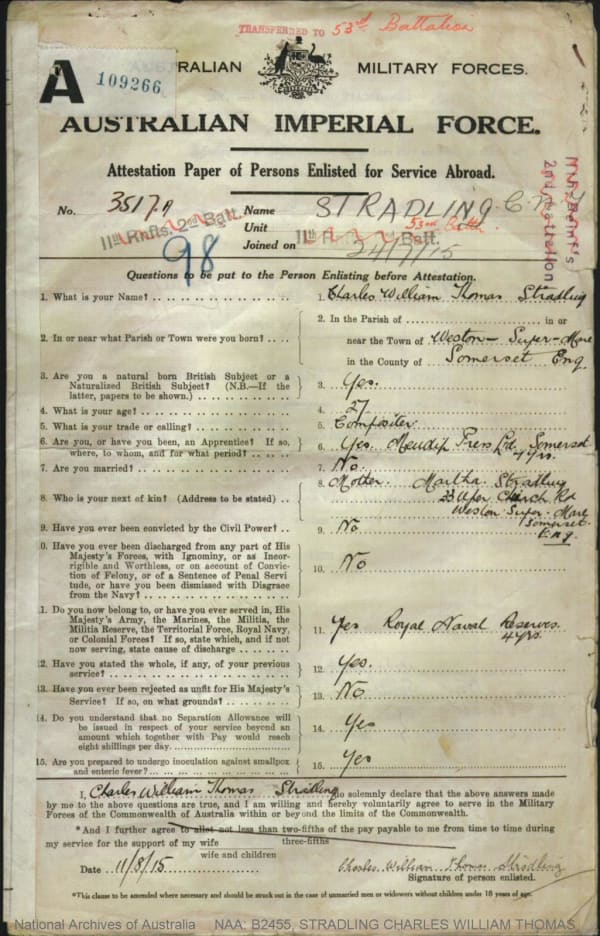 TRANSFERRED TO 53rd Battalion
A 109266
AUSTRALIAN MILITARY FORCES.
AUSTRALIAN IMPERIAL FORCE.
Attestation Paper of Persons Enlisted for Service Abroad.
No. 3517A Name STRADLING C.W.
11th Rnfts. 2nd Batt. Unit 53rd Battn.
98 Joined on 24/7/15
2nd Battalion
Questions to be put to the Person Enlisting before Attestation.
1. What is your Name? 1. Charles William Thomas Stradling
2. In or near what Parish or Town were you born? 2. In the Parish of in or
near the Town of Weston-Super-Mare
in the County of Somerset Eng.
3. Are you a natural born British Subject or a
Naturalized British Subject? (N.B.—If the 3. Yes.
latter, papers to be shown.)
4. What is your age? 4. 27
5. What is your trade or calling? 5. Compositer
6. Are you, or have you been, an Apprentice? If so, 6. Yes. Mendip Press Ltd. Somerset
where, to whom, and for what period? 4 yrs.
7. Are you married? 7. No.
8. Who is your next of kin? (Address to be stated) 8. Mother. Martha Stradling
33 Uper Church Rd
Weston Super. Mare
Somerset.
Eng.
9. Have you ever been convicted by the Civil Power? 9. No
0. Have you ever been discharged from any part of His
Majesty's Forces, with Ignominy, or as Incor-
rigible and Worthless, or on account of Convic-
tion of Felony, or of a Sentence of Penal Servi 10. No
tude, or have you been dismissed with Disgrace
from the Navy?
1. Do you now belong to, or have you ever served in, His
Majesty's Army, the Marines, the Militia, the
Militia Reserve, the Territorial Force, Royal Navy, 11. Yes Royal Naval Reserves.
or Colonial Forces? If so, state which, and if not 4 yrs.
now serving, state cause of discharge
2. Have you stated the whole, if any, of your previous
service? 12. Yes.
13. Have you ever been rejected as unfit for His Majesty's
Service? If so, on what grounds? 13. No
14. Do you understand that no Separation Allowance will
be issued in respect of your service beyond an
amount which together with Pay would reach 14. Yes
eight shillings per day.
15. Are you prepared to undergo inoculation against smallpox
and enteric fever? 15. Yes
I, Charles William Thomas Stradling do solemnly declare that the above answers made
by me to the above questions are true, and I am willing and hereby voluntarily agree to serve in the Military
Forces of the Commonwealth of Australia within or beyond the limits of the Commonwealth.
*And I further agree to allot not less than two-fifths of the pay payable to me from time to time during
three-fifths
my service for the support of my wife
wife and children
Date 11/8/15 Charles William Thomas Stradling
Signature of person enlisted.
*This clause to be amended where necessary and should be struck out in the case of unmarried men or widowers without children under 18 years of age.
National Archives of Australia NAA: B2455, STRADLING CHARLES WILLIAM THOMAS